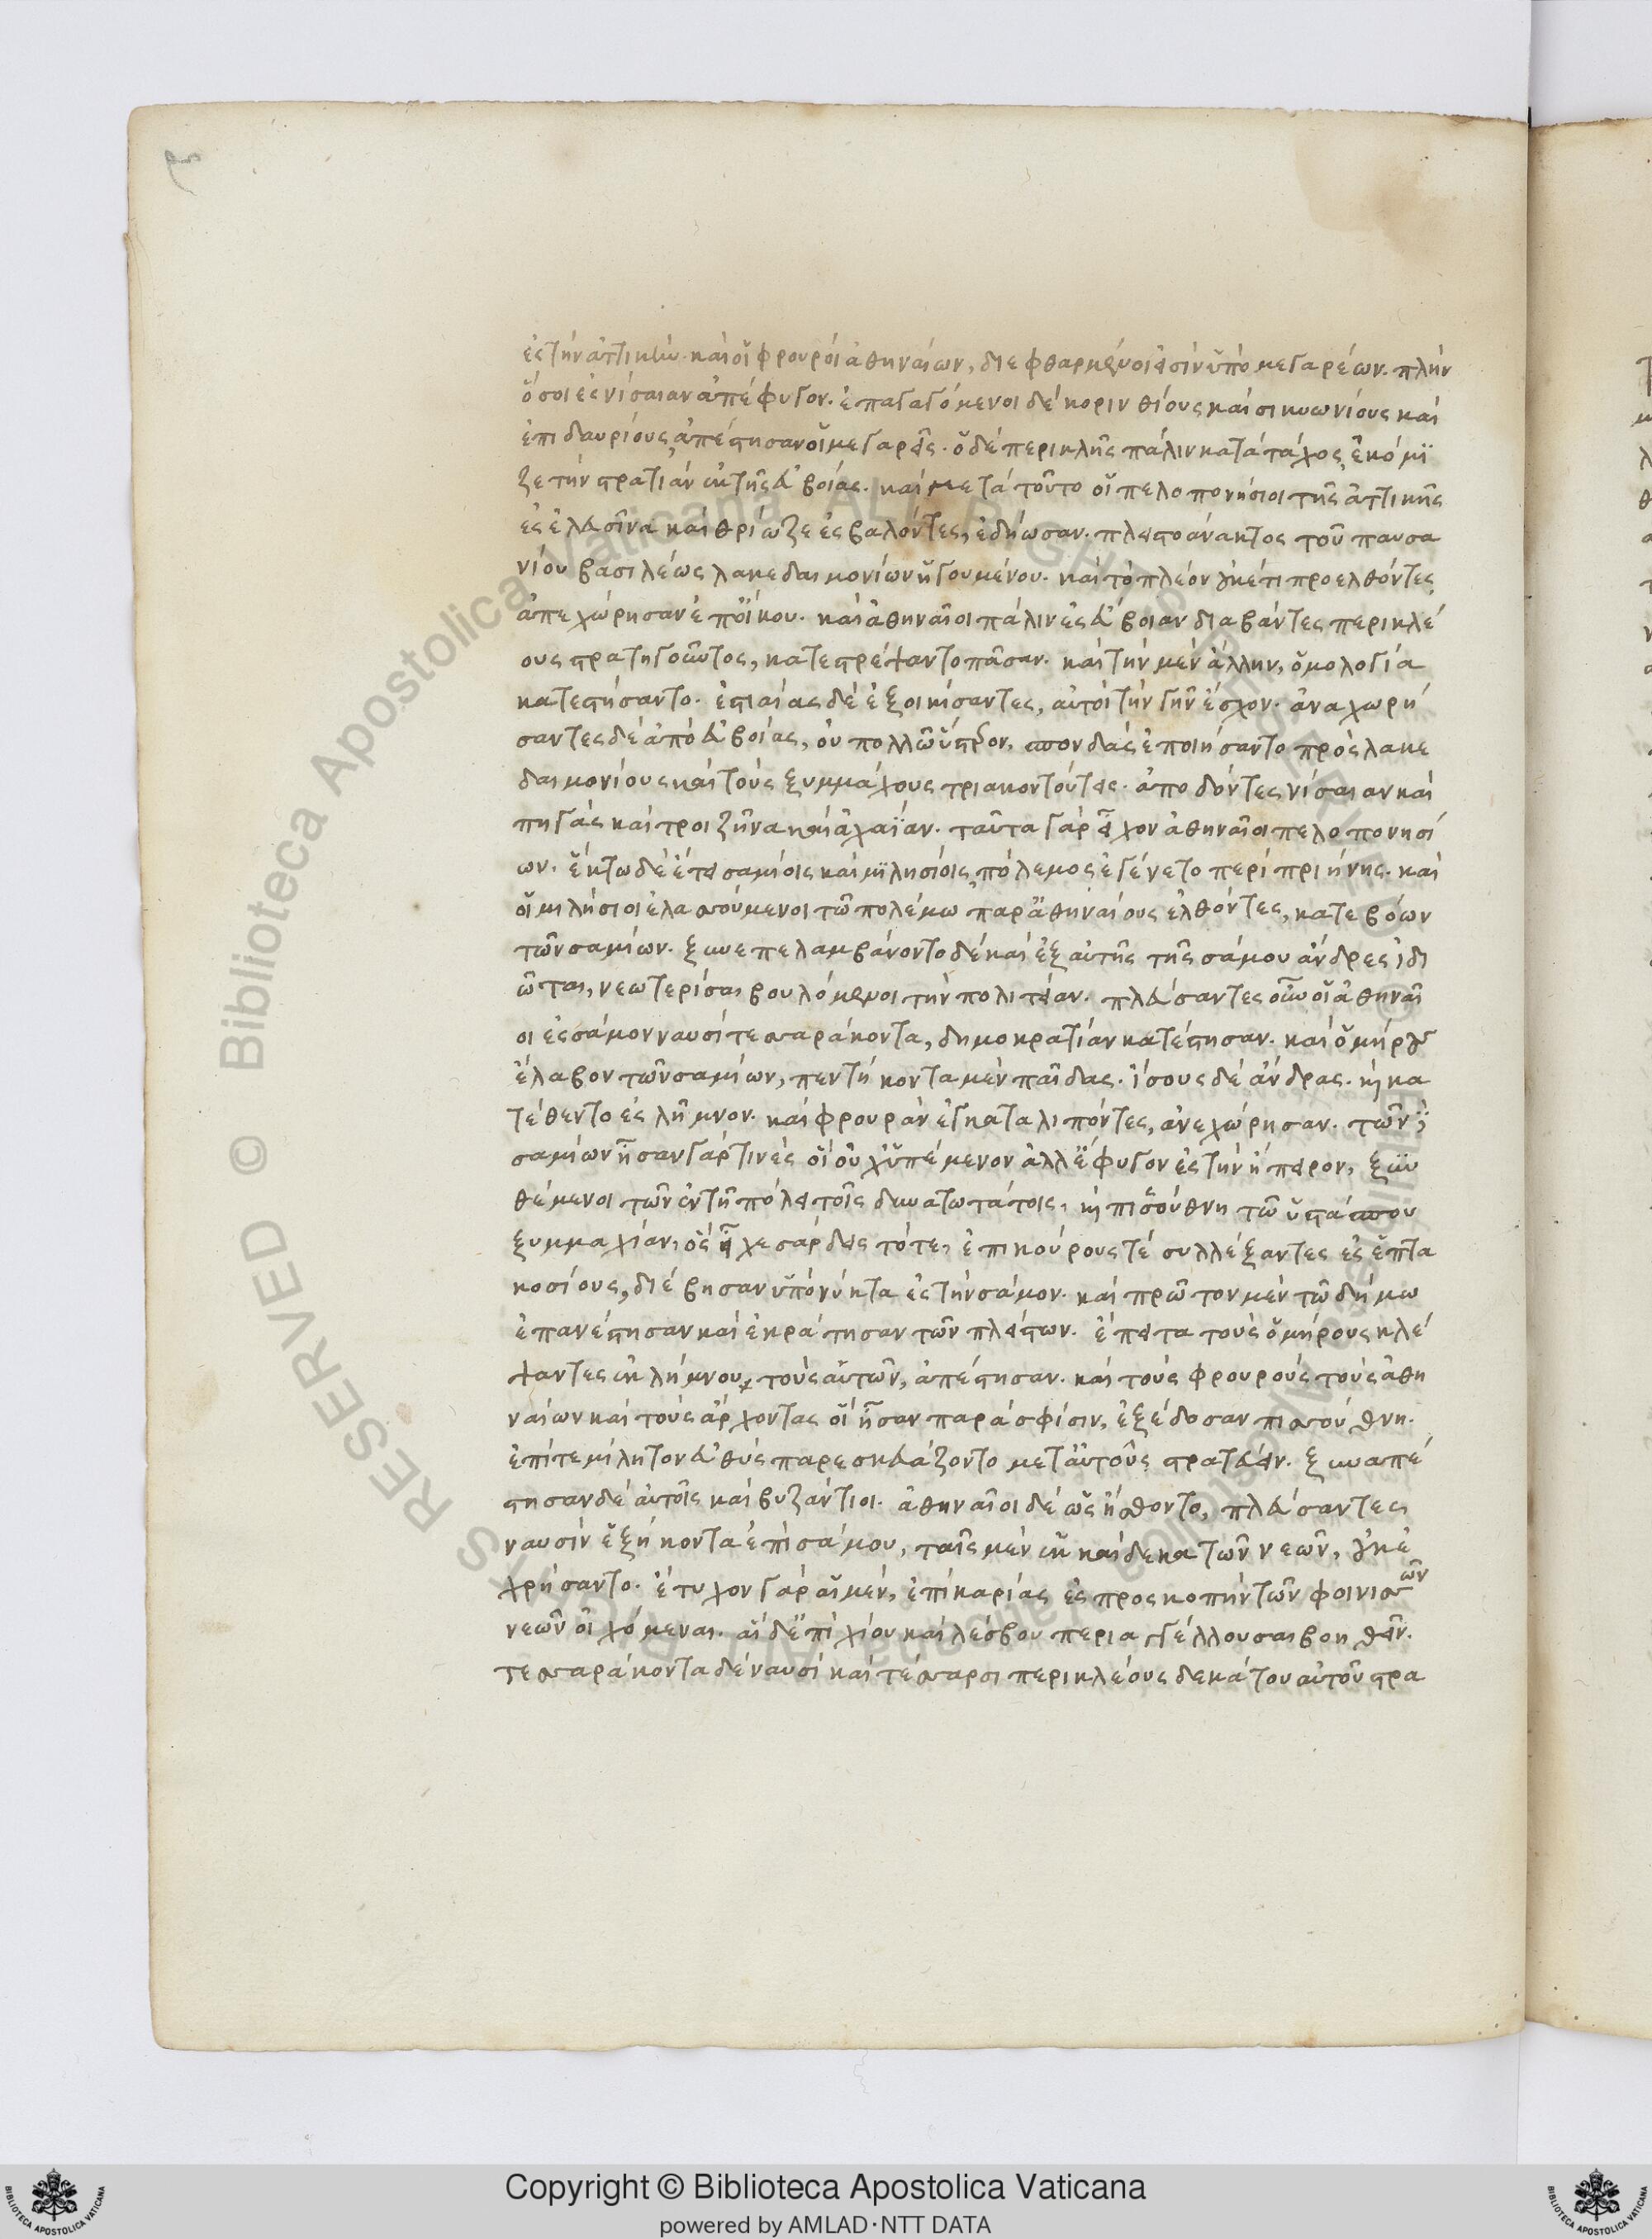 ἐς τὴν ἀττικὴν. καὶ οἱ φρουροὶ ἀθηναίων, διεφθαρμένοι εἰσὶν ὑπὸ μεγαρέων. πλὴν
ὅσοι ἐς νίσαιαν ἀπέφυγον. ἐπαγαγόμενοι δὲ κορινθίους καὶ σικυωνίους καὶ
ἐπιδαυρίους, ἀπέστησαν οἱ μεγαρεῖς. ὁ δὲ περικλῆς πάλιν κατὰ τάχος ἐκόμι
ζε τὴν στρατιὰν ἐκ τῆς εὐβοίας. καὶ μετὰ τοῦτο οἱ πελοπονήσιοι τῆς ἀττικῆς
ἐς ἐλευσῖνα καὶ θριῶζε ἐσβαλόντες, ἐδήωσαν. πλειστοάνακτος τοῦ παυσα
νίου βασιλέως λακεδαιμονίων ἡγουμένου. καὶ τὸ πλέον οὐκέτι προελθόντες
ἀπεχώρησαν ἐπ οἴκου. καὶ ἀθηναῖοι πάλιν ἐς εὔβοιαν διαβάντες περικλέ
ους στρατηγοῦντος, κατεστρέψαντο πᾶσαν. καὶ τὴν μὲν ἄλλην, ὁμολογία
κατεστήσαντο. ἑστιαίας δὲ ἐξοικίσαντες, αὐτοὶ τὴν γῆν ἔσχον. ἀναχωρή
σαντες δὲ ἀπὸ εὐβοίας, οὐ πολλῶ ὕστερον, σπονδὰς ἐποιήσαντο πρὸς λακε
δαιμονίους καὶ τοὺς ξυμμάχους τριακοντούτεις. ἀποδόντες νίσαιαν καὶ
πηγὰς καὶ τροιζῆνα καὶ ἀχαΐαν. ταῦτα γὰρ εἶχον ἀθηναῖοι πελοπονησί
ων. ἕκτω δὲ ἔτει σαμίοις καὶ μιλησίοις πόλεμος ἐγένετο περὶ πριήνης. καὶ
οἱ μιλήσιοι ἐλασσούμενοι τῶ πολέμω παρ ἀθηναίους ἐλθόντες, κατεβόων
τῶν σαμίων. ξυνεπελαμβάνοντο δὲ καὶ ἐξ αὐτῆς τῆς σάμου ἄνδρες ἰδι
ῶται, νεωτερίσαι βουλόμενοι τὴν πολιτείαν. πλεύσαντες οὖν οἱ ἀθηναῖ
οι ἐς σάμον ναυσὶ τεσσαράκοντα, δημοκρατίαν κατέστησαν. καὶ ὁμήρους
ἔλαβον τῶν σαμίων, πεντήκοντα μὲν παῖδας. ἴσους δὲ ἄνδρας. καὶ κα
τέθεντο ἐς λῆμνον. καὶ φρουρὰν ἐγκαταλιπόντες, ἀνεχώρησαν. τῶν
σαμίων ἦσαν γάρ τινὲς οἳ οὐχ ὑπέμενον ἀλλ ἔφυγον ἐς τὴν ἤπειρον, ξυν
θέμενοι τῶν ἐν τῆ πόλει τοῖς δυνατωτάτοις, καὶ πισσούθνη τῶ ὑστάσπου
ξυμμαχίαν, ὃς εἶχε σάρδεις τότε, ἐπικούρους τὲ συλλέξαντες ἐς ἑπτα
κοσίους, διέβησαν ὑπὸ νύκτα ἐς τὴν σάμον. καὶ πρῶτον μὲν τῶ δήμω
ἐπανέστησαν καὶ ἐκράτησαν τῶν πλείστων. ἔπειτα τοὺς ὁμήρους κλέ
ψαντες ἐκ λήμνου, τοὺς αὑτῶν, ἀπέστησαν. καὶ τοὺς φρουροὺς τοὺς ἀθη
ναίων καὶ τοὺς ἄρχοντας οἳ ἦσαν παρὰ σφίσιν, ἐξέδοσαν πισσούθνη.
ἐπί τε μίλητον εὐθὺς παρεσκευάζοντο μετ αὐτοὺς στρατεύειν. ξυναπέ
στησαν δὲ αὐτοῖς καὶ βυζάντιοι. ἀθηναῖοι δὲ ὡς ἤσθοντο, πλεύσαντες
ναυσὶν ἑξήκοντα ἐπὶ σάμου, ταῖς μὲν ἑκκαίδεκα τῶν νεῶν, οὐκ ἐ
χρήσαντο. ἔτυχον γὰρ αἱ μὲν, ἐπὶ καρίας ἐς προσκοπὴν τῶν φοινισσῶν
νεῶν οἰχόμεναι. αἱ δ ἐπὶ χίου καὶ λέσβου περιαγγέλλουσαι βοηθεῖν.
τεσσαράκοντα δὲ ναυσὶ καὶ τέσσαρσι περικλέους δεκάτου αὐτοῦ στρα
Copyright © Biblioteca Apostolica Vaticana
powered by AMLAD·NTT DATA